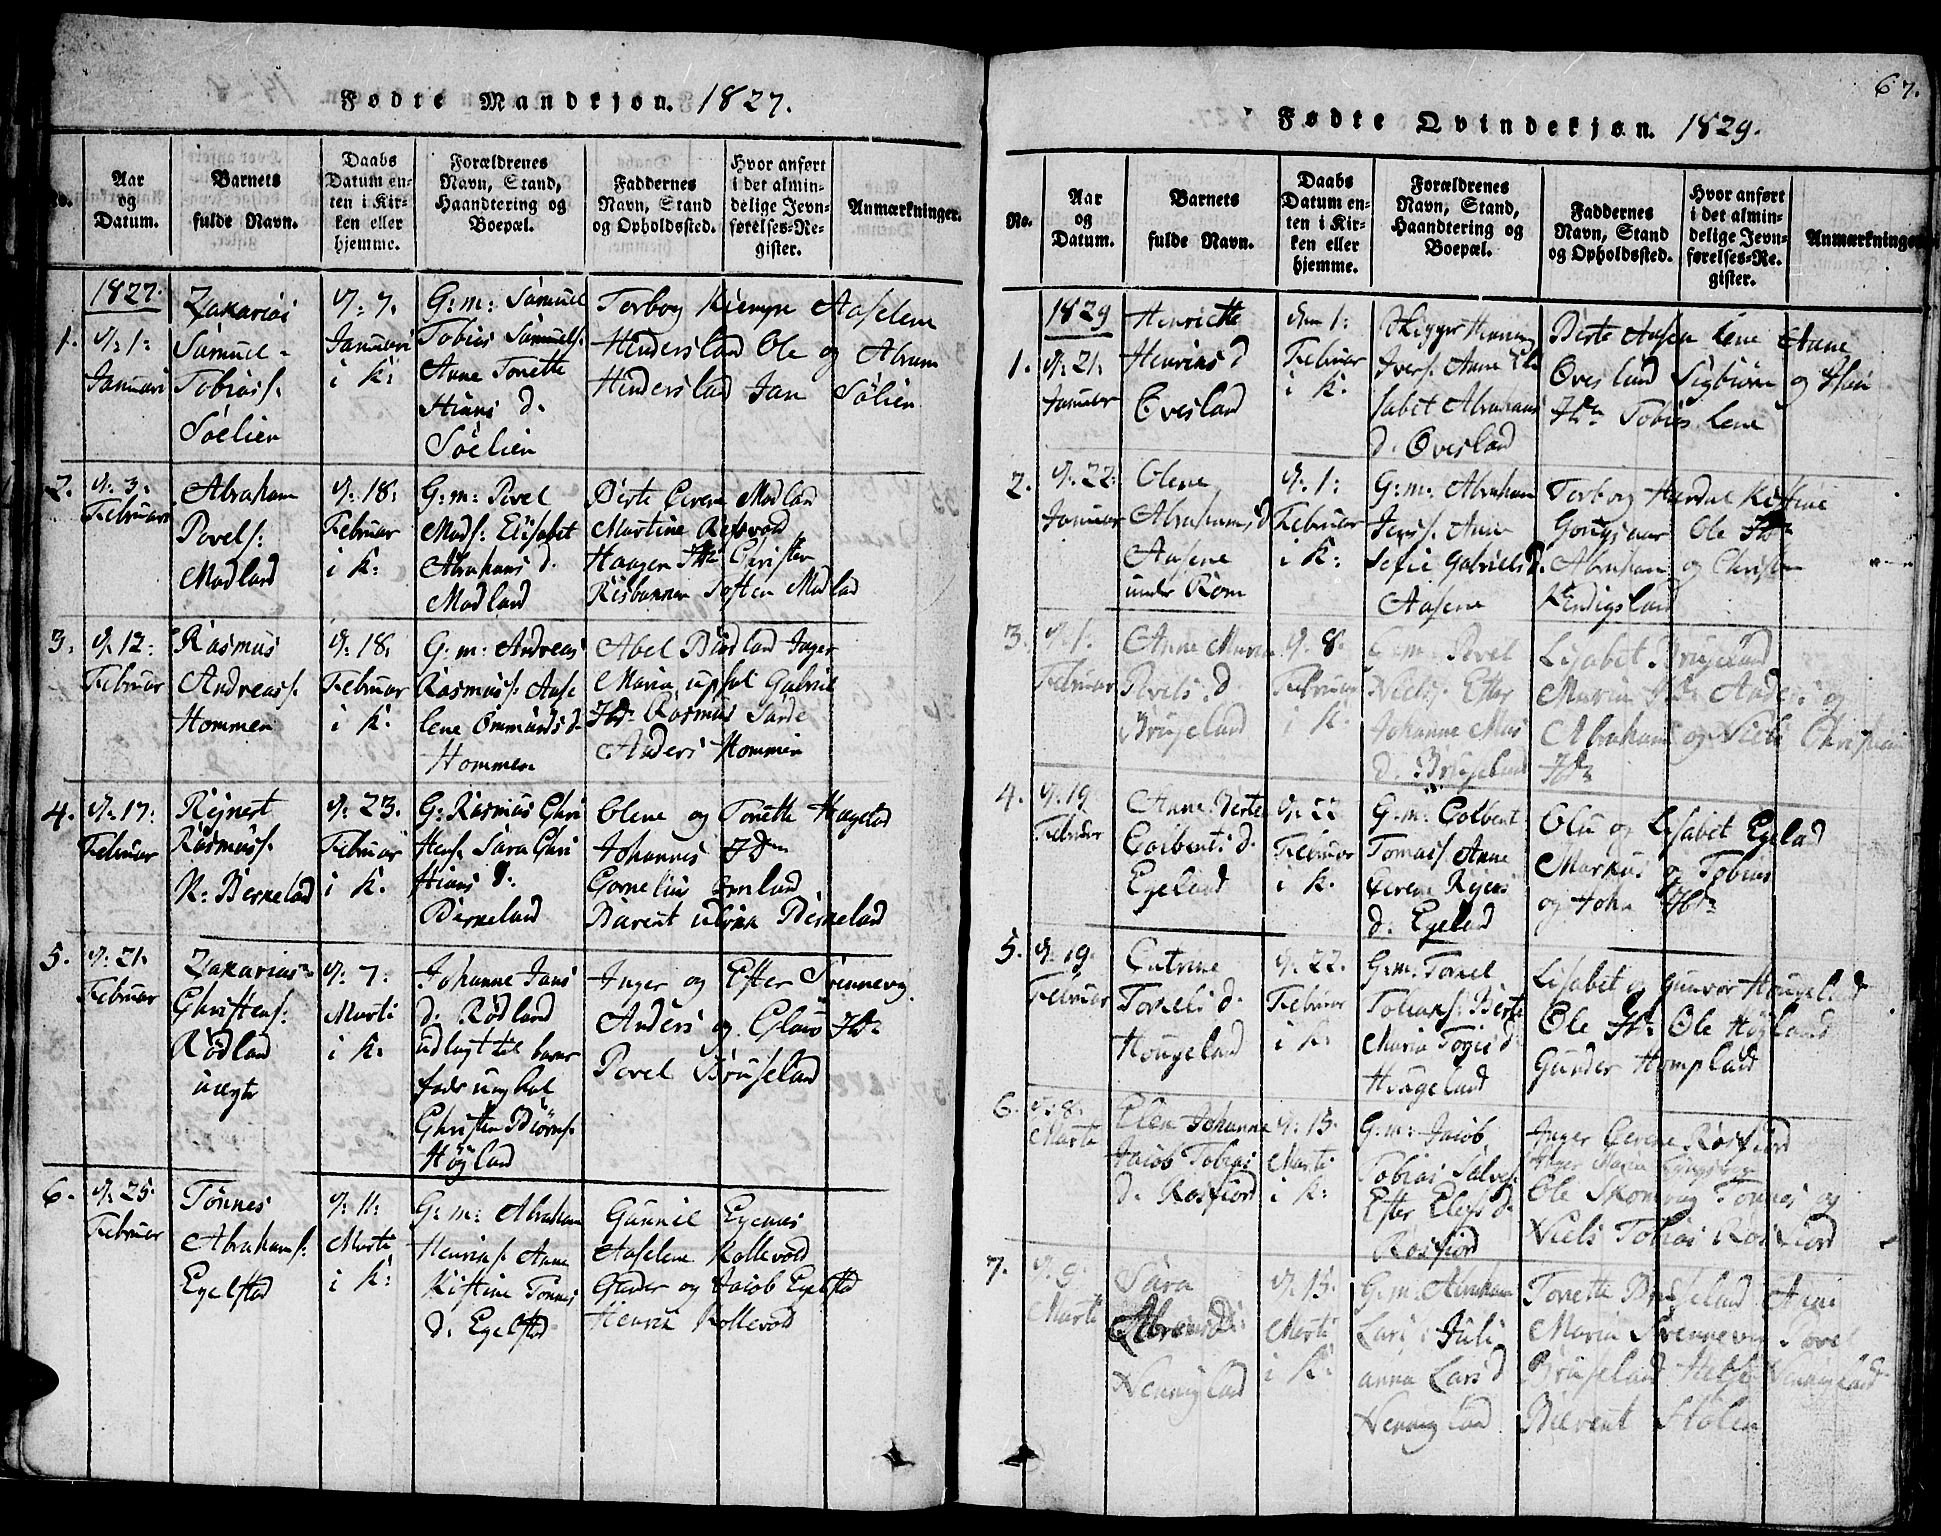 Fødte Mandkjøn. 1827.
No.
Aar
og
Datum.
Barnets
fulde Navn.
Daabs
Datum en-
ten i Kir-
ken eller
hjemme.
Forældrenes
Navn, Stand,
Haandtering og
Boepæl.
Faddernes
Navn, Stand
og Opholdssted.
Hvor anført
i det almin-
delige Jevn-
førelses-Re-
gister.
Anmærkninger.
1827.
1.
d. 1.
Januari
Zakarias
Samuel
Tobiass.
Söelien
d. 7.
Januari
i K:
G: m: Samuel
Tobias Samuels.
Anne Tonette
Stians d.
Söelien
Terborg Kiempe Aaselene
Hindersland Ole og Abram
Hindersland Jan Sölien
2.
d. 3.
Februari
Abraham
Povels:
Modland
d. 18.
Februar
i K:
G: m: Povel
Mads: Elisabet
Abrahams d.
Modland
Birte Cerene Modland
Martine Refsvold
Haagen Ibm Christen
Risbannen Toften Modlad
3.
d. 12:
Februar
Rasmus
Andreass.
Hommen
d. 18.
Februar
i K:
G: m: Andreas
Rasmuss. Aase
lene Ommunds d.
Hommen
Abel Birkland Inger
Maria upsal Gabriel
Ibm Rasmus Sande
Anders Hommen
4.
d. 17:
Februar
Rejnert
Rasmuss.
K: Berneland
d. 23.
Februar
i K.
G: Rasmus Chri
stens. Sara Chri
stians d:
Berneland
Olene og Tonette Hageland
Johannes Ibm
Cornelius Omland
Bärent Berneland
5.
d. 21.
Februar
Zakarias
Christens:
Rödland
uægte
d. 7.
Marti
i K.
Johanne Jans
d. Rödland
udlagt til barne
fader ungkal
Christen Biörns.
Höyland
Inger og Ester Svennevig
Anders og Claus Ibm
Povel Bruseland
6.
d. 25.
Februar
Tönnes
Abrahams:
Egelstad
d. 11.
Marti
i K:
G: m: Abraham
Henriks. Anne
Kistine Tönnes
d. Egelstad
Gunnil Egenes
Aaselene Kollevold
Gunder og Jacob Egelstad
Henrik Kollevold
67.
Fødte Qvindekjøn. 1829.
No.
Aar
og
Datum.
Barnets
fulde Navn.
Daabs
Datum en-
ten i Kir-
ken eller
hjemme.
Forældrenes
Navn, Stand,
Haandtering og
Boepæl.
Faddernes
Navn, Stand
og Opholdssted.
Hvor anført
i det almin-
delige Jevn-
førelses-Re-
gister.
Anmærkninger
1829
1.
d. 21.
Januar
Henriette
Henriks d
Övesland
den 1:
Februar
i K.
Henning
Ivers. Anne Eli
sabet Abrahams
d. Övesland
Birte Aasen Lene Anne
Övesland Sigbiörn og
Ibm Tobias Lene
2.
d. 22:
Januar
Olene
Abrahams d
Aasene
under Rom
d. 1:
Februar
i K:
G: m: Abraham
Jens. Anne
Sefie Gabriels d.
Aasene
Terborg Hærdal Kistine
Ole Ibm
Abraham og Christen
Kendigsland
3.
d. 1.
Februar
Anne Maria
Povels d.
Bruseland
d. 8.
Februar
i K:
G: m: Povel
Niels. Ester
Johanne Mas
d. Bruseland
Lisabet Bruseland
Maria Ibm Anders og
Abraham og Niels Christian
Ibm
4.
d. 19
Februar
Anne Berte
Colbents d.
Egeland
d. 22
Februar
i K.
G: m: Colbent
Tomass. Anne
Cerene Rejers
d. Egeland
Olu og Lisabet Egelad
Markus og Tobias
og John Ibm
5.
d. 19.
Februar
Catrine
Torrels d.
Hougeland
d. 22.
Februar
i K.
G: m: Torrel
Tobias: Berte
Maria Torjes d
Hougeland
Lisabet og Gunvor Hougeland
Ole Ibm Ole Höyland
Gunder Hompland
6.
d. 8.
Marti
Elen Johanne
Jacob Tobias
d. Rosfiord
d. 15.
Marti
i K:
G: m: Jacob
Tobias Salves.
Ester Elefs d.
Rosfiord
Inger Cerene Rosfiord
Inger Maria
Ole Skomrag Tönnes og
Niels Tobias Rosfiord
7.
d. 9.
Marti
Sara
Abrams d:
Nennigland
d. 15.
Marti
i K:
G: m: Abraham
Lars: Juli
anna Lars d
Nennigland
Tonette Bruseland Ane
Maria Svennevig Povel
Bruseland Nennigland
Bærent Stolen